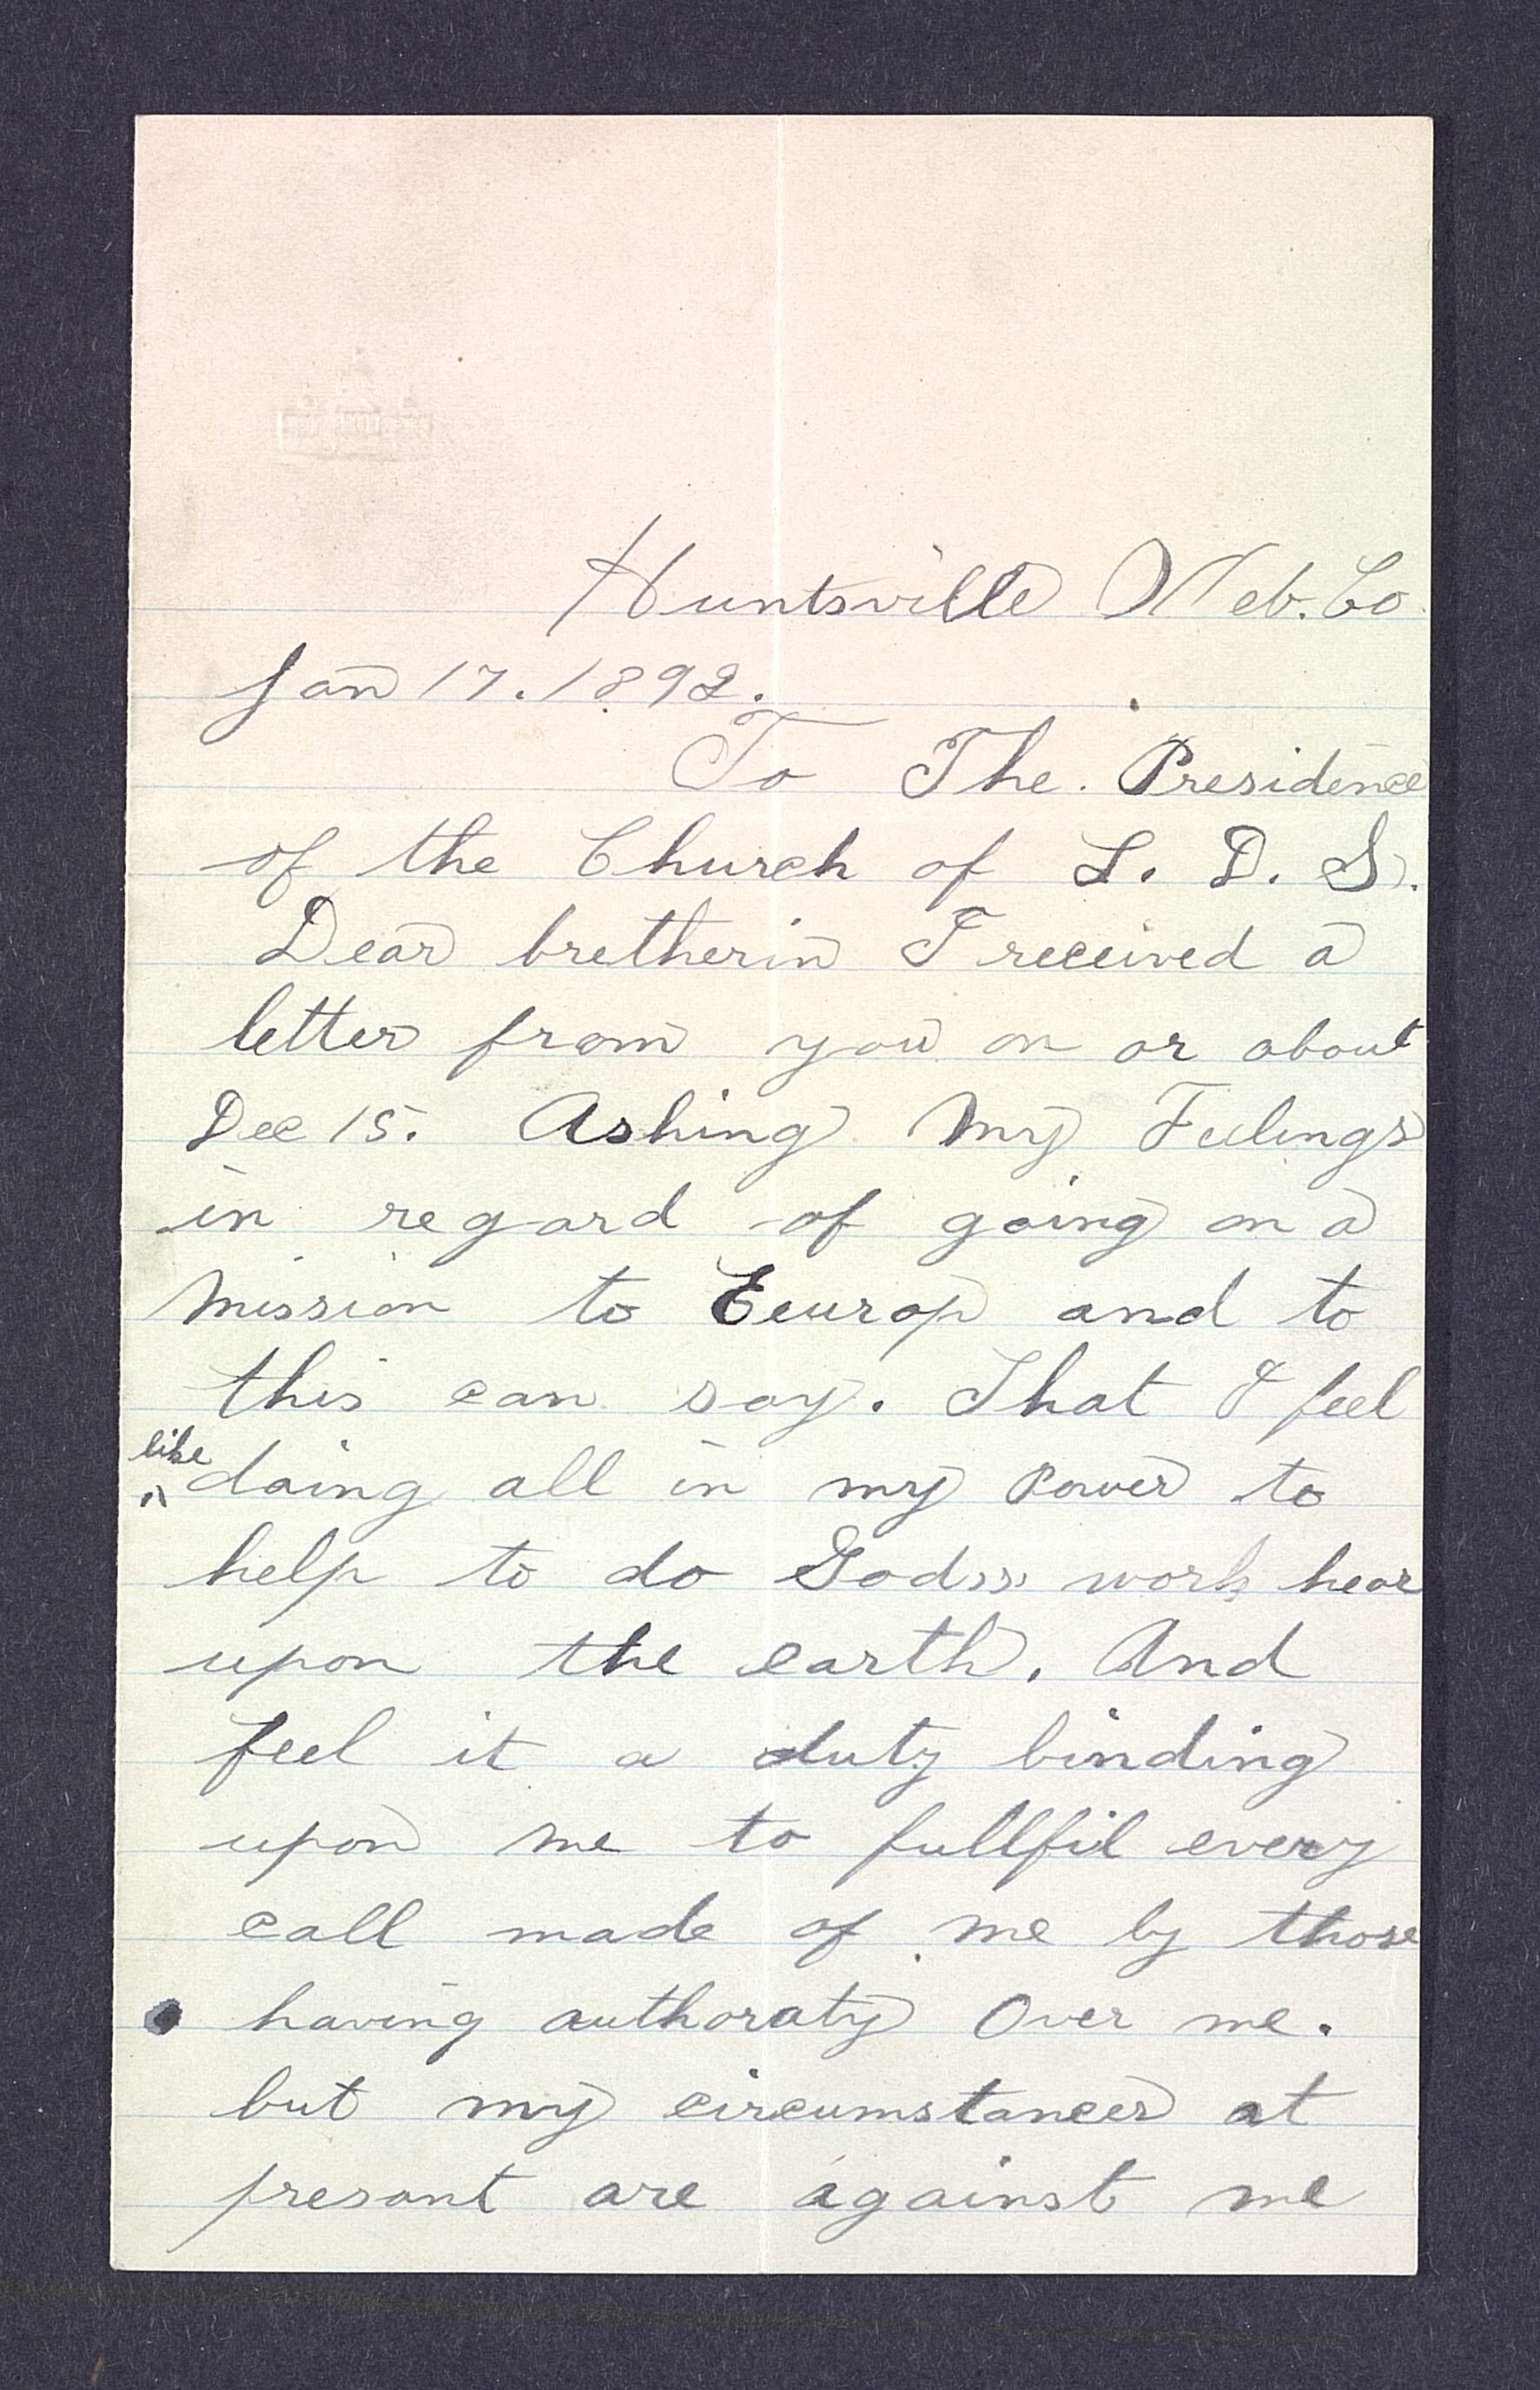 Huntsville Web. Co
Jan 17. 1892.
To The. Presidence
of the Church of L. D. S.
Dear bretherin I received a
letter from you on or about
Dec 15. Asking My Feelings
in regard of going on a
Mission to Eeurop and to
this can say. That I feel
like
^ doing all in my Power to
help to do Gods work hear
upon the earth. And
feel it a duty binding
upon me to fullfil every
call made of me by those
having authoraty Over me.
but my circumstances at
presant are against me